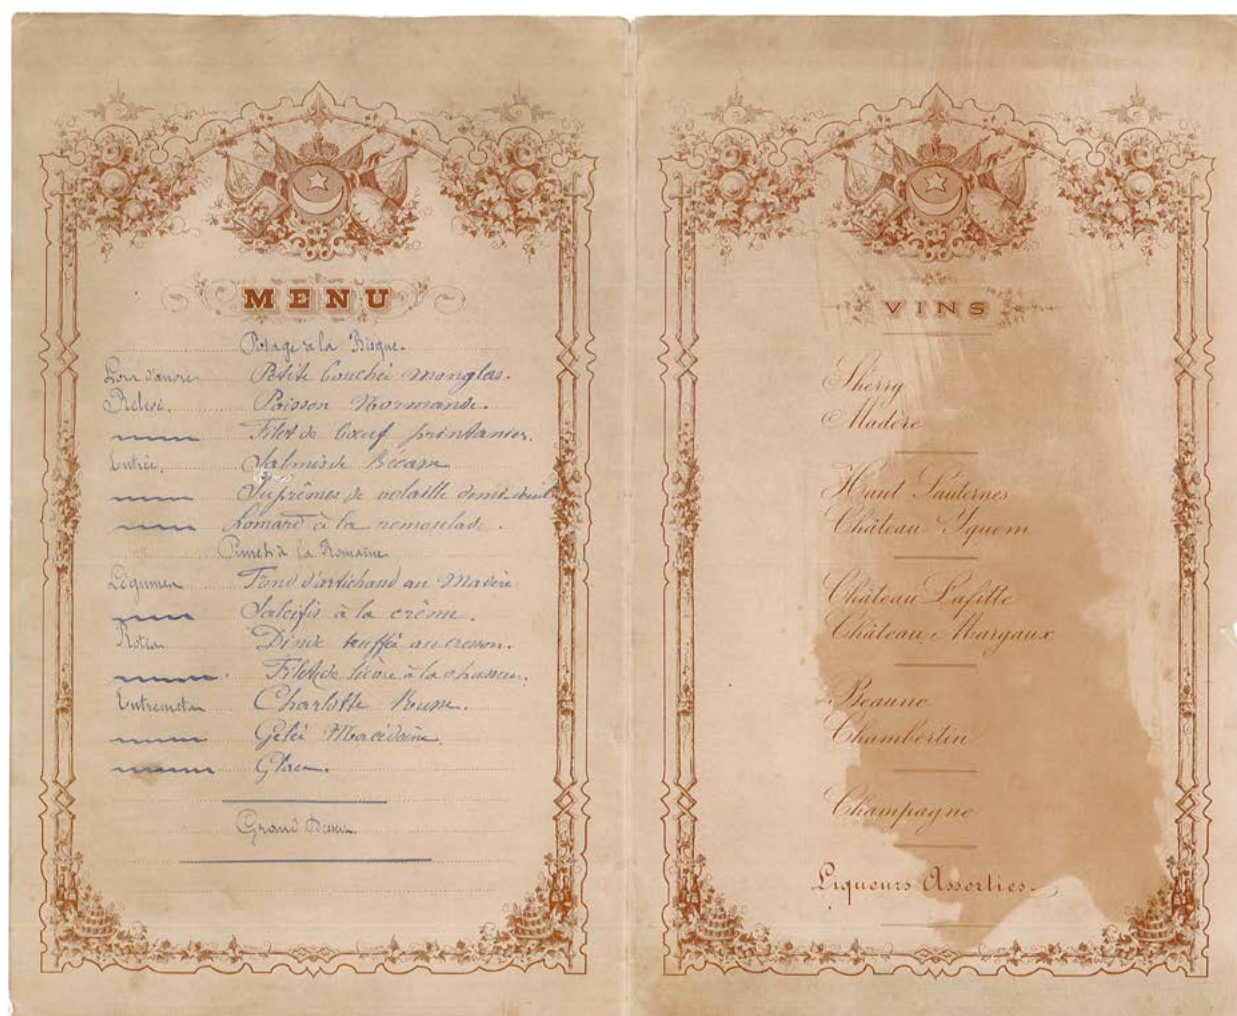 MENU
Potage à la Bisque.
Hors d'œuvre Petite bouchée Monglas.
Relevé. Poisson Normande.
Filet de bœuf printanier.
Entrée. Salmis de Bécasse
Suprêmes de volaille demi deuil
homard à la remoulade.
Punch à la Romaine
Légumes Fond d'artichaud au Madère.
Salsifis à la crème.
Rotis Dinde truffée au cresson.
Filet de lièvre à la chasseur.
Entremets Charlotte Russe.
Gelée Macédoine.
Glaces.
Grand Dessert.
VINS
Sherry
Madère
Haut Sauternes
Château Yquem
Château Lafitte
Château Margaux
Beaune
Chambertin
Champagne
Liqueurs Assorties